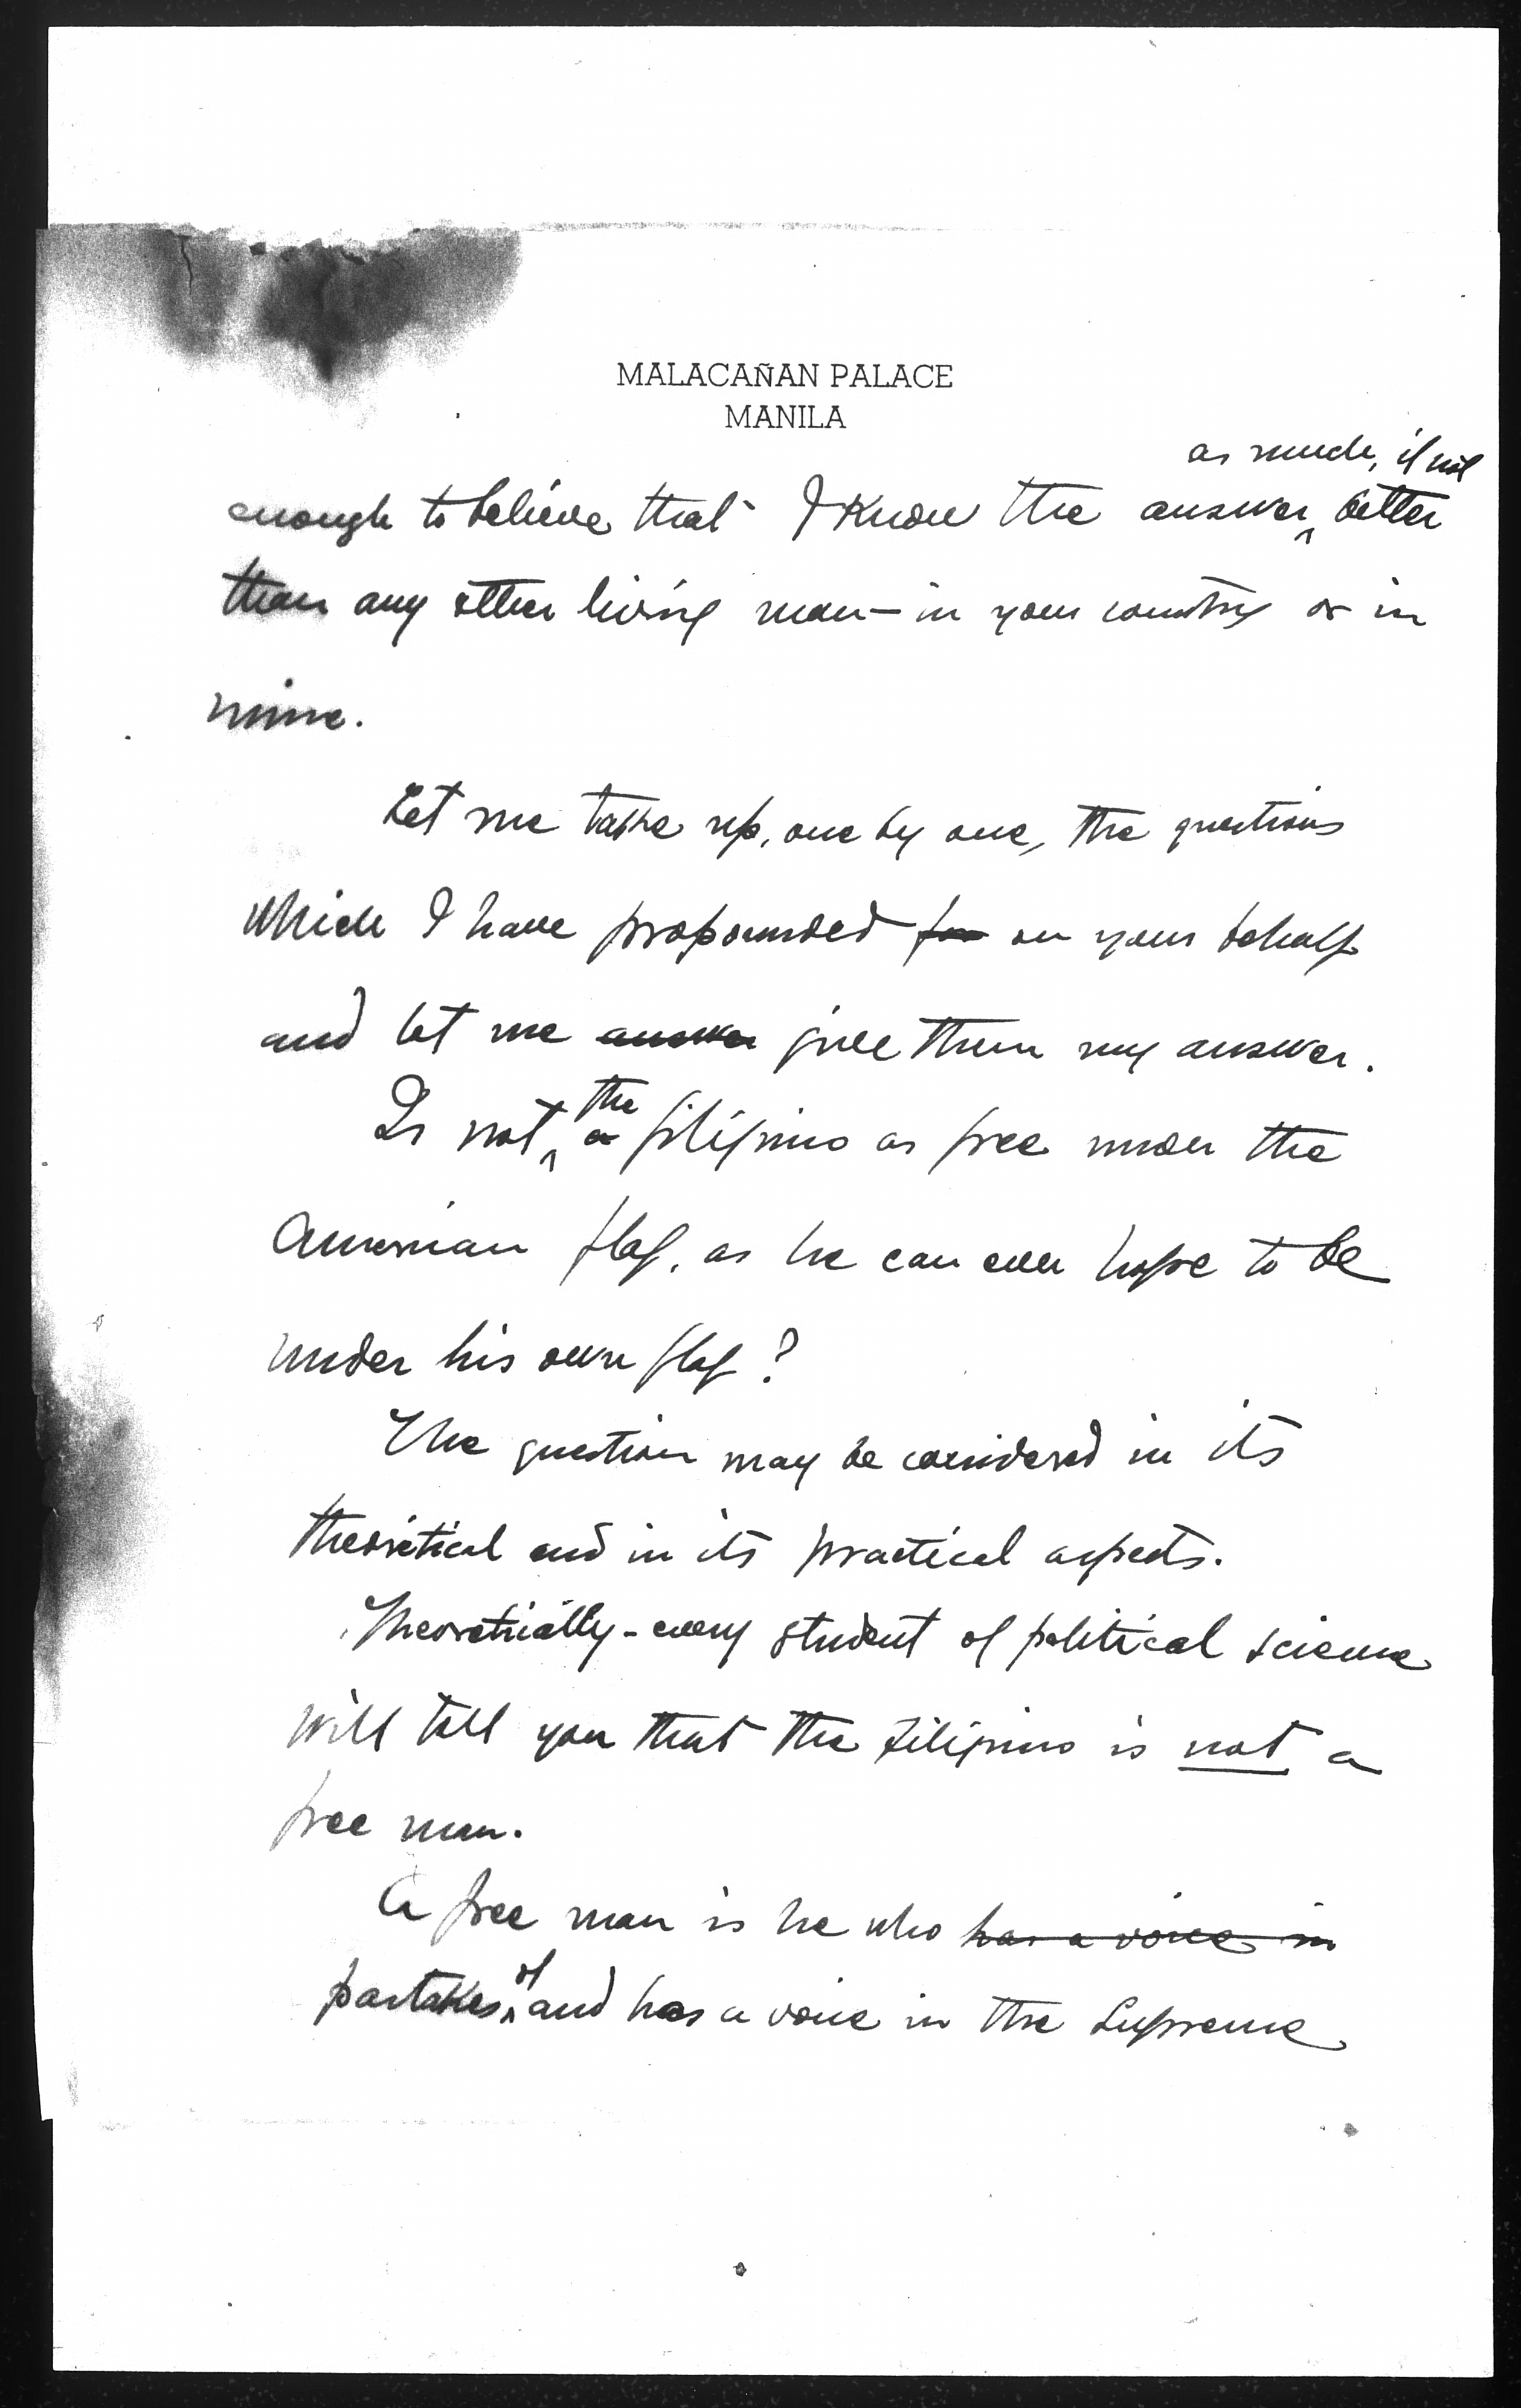 MALACAÑAN PALACE
MANILA
as much, if not
enough to believe that I know the answer ‸ better
than any other living man — in your country or in
mine.
Let me take up, one by one, the questions
which I have propounded for on your behalf
and let me answer give them my answer.
the
Is not ‸ a filipino as free under the
American flag, as he can ever hope to be
under his own flag?
The question may be considered in its
theoretical and in its practical aspects.
Theoretically - every student of political science
will tell you that the Filipino is not a
free man.
A free man is he who has a voice in
of
partakes ‸ and has a voice in the Supreme